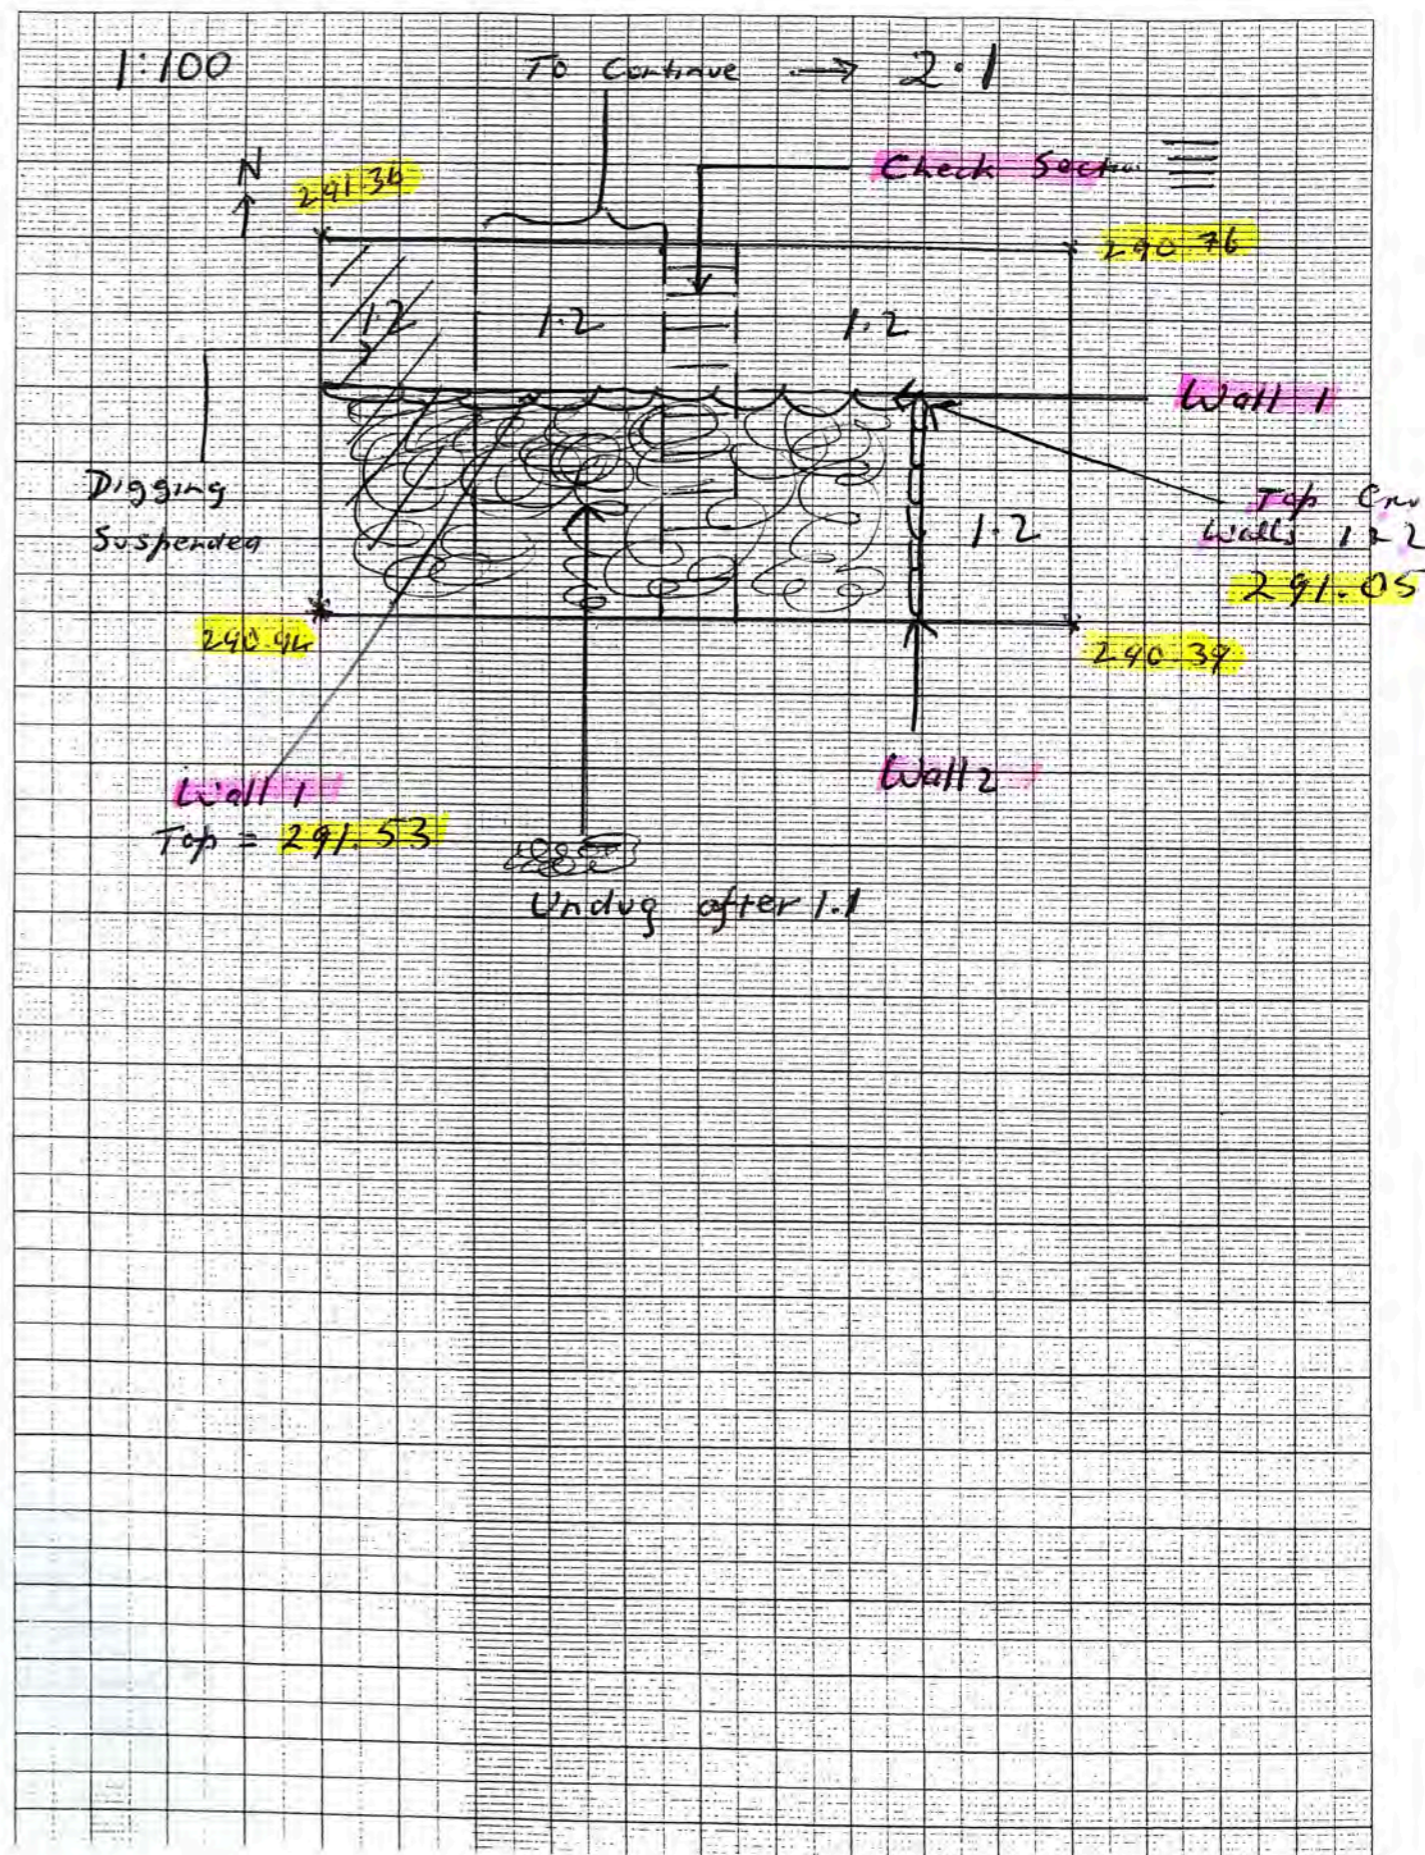 1:100
To Continue → 2.1
N
291.36
Check Section
290.76
1.2
1.2
1.2
Wall 1
Digging
Suspended
Top
Walls 1 & 2
291.05
1.2
290.39
Wall 1
Top = 291.53
Wall 2
Undug after 1.1